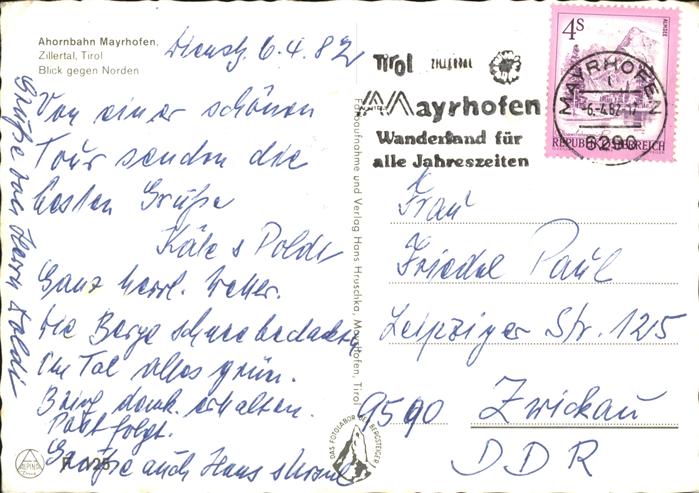 Ahornbahn Mayrhofen,
Zillertal, Tirol
Blick gegen Norden
Dienstg. 6.4.82
Von einer schönen
Tour senden die
besten Grüße
Käte & Poldi
Ganz herrl. Wetter.
Die Berge schneebedeckt
Im Tal alles grün.
Brief dank. erhalten.
Post folgt.
Grüße auch Hans
Grüße an Herrn Poldi
F 125
ALPINA
Farbaufnahme und Verlag Hans Hruschka, Mayrhofen, Tirol
DAS FOTOLABOR DER BERGSTEIGER
Tirol ZILLERTAL
Mayrhofen
Wanderland für
alle Jahreszeiten
MAYRHOFEN
-6.-4.82-17
6290
4S
ALMSEE
REPUBLIK ÖSTERREICH
Frau
Friedel Paul
Leipziger Str. 125
9590 Zwickau
DDR